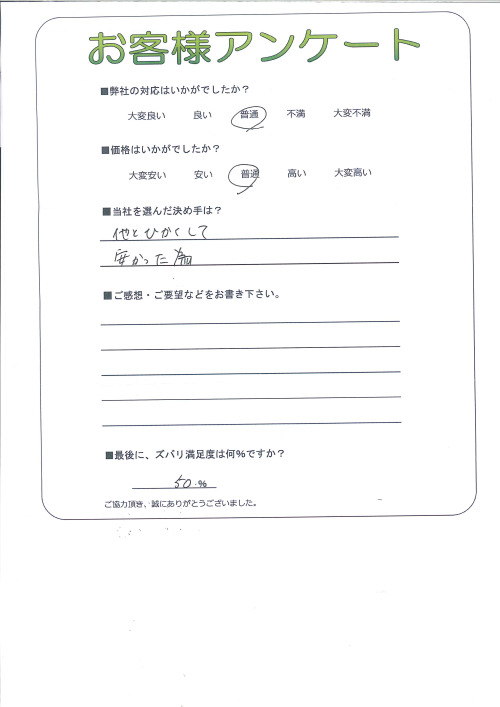 お客様アンケート
■弊社の対応はいかがでしたか？
大変良い 良い 普通 不満 大変不満
■価格はいかがでしたか？
大変安い 安い 普通 高い 大変高い
■当社を選んだ決め手は？
他とひかくして
安かった為
■ご感想・ご要望などをお書き下さい。
■最後に、ズバリ満足度は何%ですか？
50 %
ご協力頂き、誠にありがとうございました。